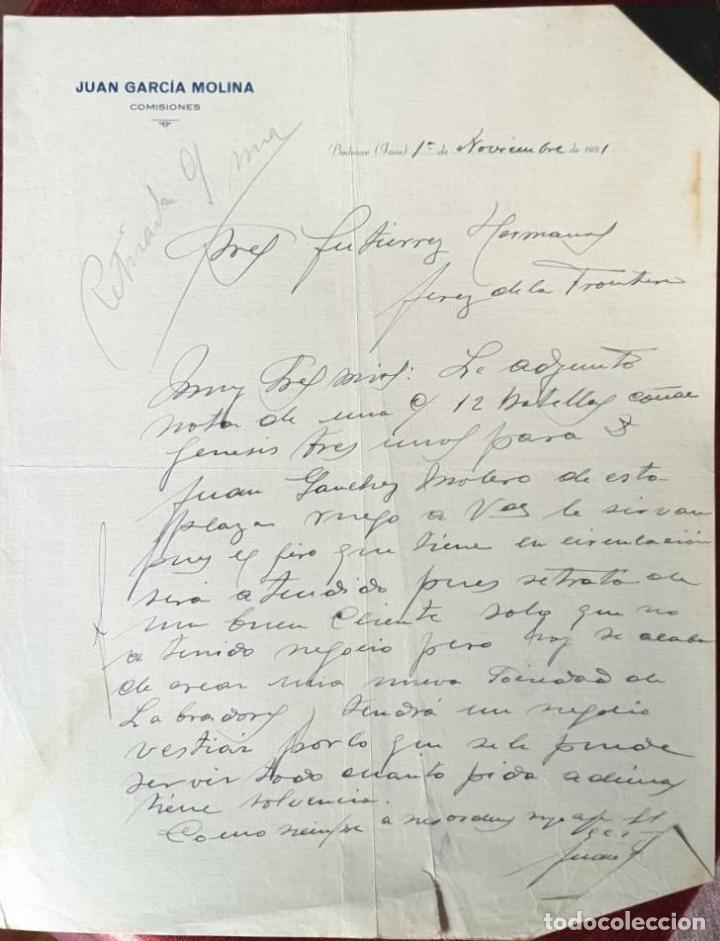 JUAN GARCÍA MOLINA
COMISIONES
Bedmar (Jaén) 1º de Noviembre de 1931
Retirada
Sres Gutierrez Hermanos
Jerez de la Frontera
Muy Sres mios: Le adjunto
nota de una c/ 12 botellas coñac
Genesis tres unos para D
Juan Sanchez de esta
plaza ruego a Vdes le sirvan
pues el giro que tiene en circulación
sera atendido pues setrata de
un buen Cliente solo que no
a tenido negocio pero hoy se acaba
de crear una nueva Sociedad de
Labradores y tendrá un negocio
por lo que se le puede
servir todo cuanto pida ademas
tiene solvencia.
Como siempre a sus ordenes
Juan G
todocoleccion